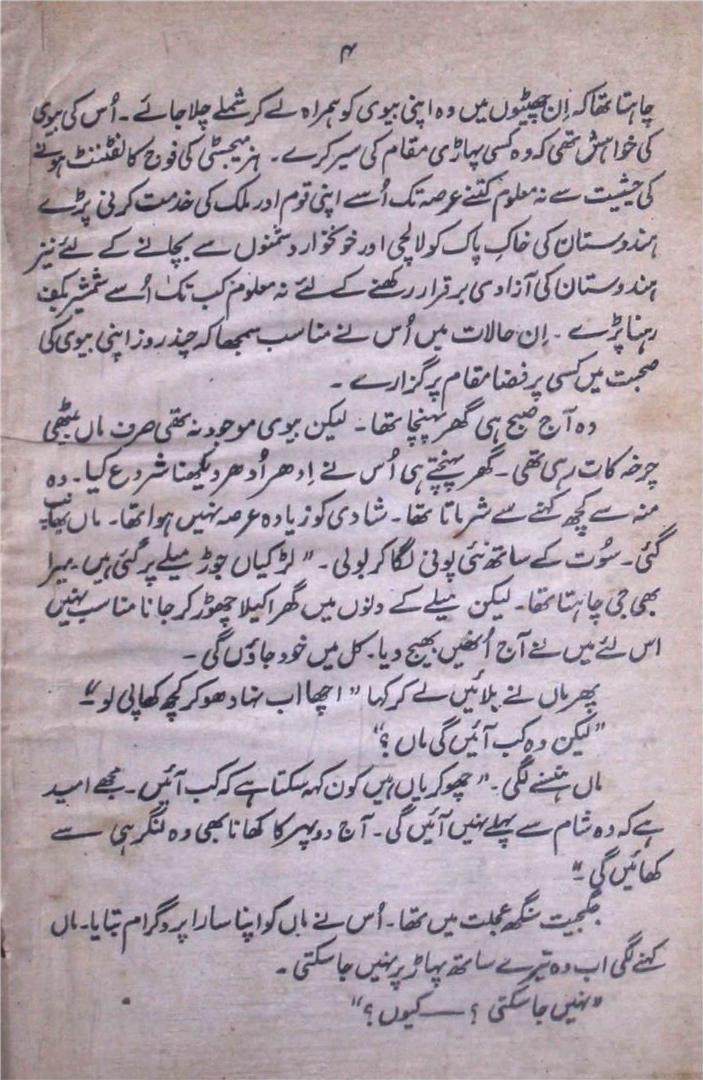 ۴
چاہتا تھا کہ اِن چھٹیوں میں وہ اپنی بیوی کو ہمراہ لے کر شملے چلا جائے۔ اُس کی بیوی
کی خواہش تھی کہ وہ کسی پہاڑی مقام کی سیر کرے۔ ہنرمیجسٹی کی فوج کا لفٹننٹ ہونے
کی حیثیت سے نہ معلوم کتنے عرصہ تک اُسے اپنی قوم اور ملک کی خدمت کرنی پڑے
ہندوستان کی خاکِ پاک کو لالچی اور خونخوار دشمنوں سے بچانے کے لئے نیز
ہندوستان کی آزادی برقرار رکھنے کے لئے نہ معلوم کب تک اُسے شمشیر بکف
رہنا پڑے۔ اِن حالات میں اُس نے مناسب سمجھا کہ چند روز اپنی بیوی کی
صحبت میں کسی پرفضا مقام پر گزارے۔
وہ آج صبح ہی گھر پہنچا تھا۔ لیکن بیوی موجود نہ تھی صرف ماں بیٹھی
چرخہ کات رہی تھی۔ گھر پہنچتے ہی اُس نے اِدھر اُدھر دیکھنا شروع کیا۔ وہ
منہ سے کچھ کہنے سے شرماتا تھا۔ شادی کو زیادہ عرصہ نہیں ہوا تھا۔ ماں بھانپ
گئی۔ سُوت کے ساتھ نئی پونی لگا کر بولی۔ "لڑکیاں جوڑ میلے پر گئی ہیں۔ میرا
بھی جی چاہتا تھا۔ لیکن میلے کے دنوں میں گھر اکیلا چھوڑ کر جانا مناسب نہیں
اس لئے میں نے آج اُنھیں بھیج دیا۔ کل میں خود جاؤں گی۔
پھر ماں نے بلائیں لے کر کہا "اچھا اب نہا دھو کر کچھ کھا پی لو۔"
"لیکن وہ کب آئیں گی ماں؟"
ماں ہنسنے لگی۔ "چھوکریاں ہیں کون کہہ سکتا ہے کہ کب آئیں۔ مجھے امید
ہے کہ وہ شام سے پہلے نہیں آئیں گی۔ آج دوپہر کا کھانا بھی وہ لنگر ہی سے
کھائیں گی۔"
جگجیت سنگھ عجلت میں تھا۔ اُس نے ماں کو اپنا سارا پروگرام بتایا۔ ماں
کہنے لگی اب وہ تیرے ساتھ پہاڑ پر نہیں جا سکتی۔
"نہیں جا سکتی؟ —— کیوں؟"